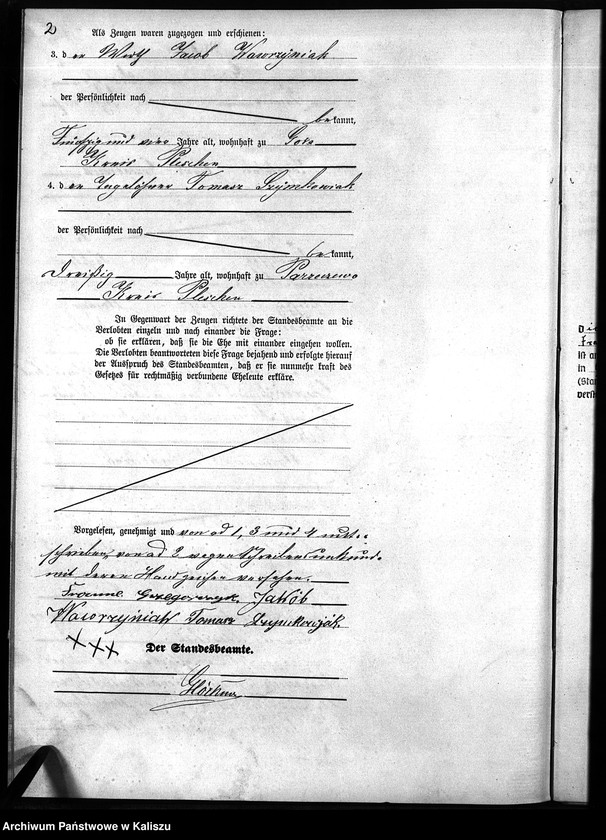 2
Als Zeugen waren zugezogen und erschienen:
3. der Wirth Jacob Wawrzyniak
der Persönlichkeit nach
bekannt,
Fünfzig und vier Jahre alt, wohnhaft zu
Kreis Pleschen
4. der Tagelöhner Tomasz Szymkowiak
der Persönlichkeit nach
bekannt,
dreißig Jahre alt, wohnhaft zu
Kreis Pleschen
In Gegenwart der Zeugen richtete der Standesbeamte an die
Verlobten einzeln und nach einander die Frage:
ob sie erklären, daß sie die Ehe mit einander eingehen wollen.
Die Verlobten beantworteten diese Frage bejahend und erfolgte hierauf
der Ausspruch des Standesbeamten, daß er sie nunmehr kraft des
Gesetzes für rechtmäßig verbundene Eheleute erkläre.
Vorgelesen, genehmigt und von ad 1, 3 und 4 unter-
schrieben, von ad 2 wegen Schreibensunkunde
mit deren Handzeichen versehen.
Grzegorczyk, Jakób
Wawrzyniak Tomasz Szymkowiak
+++
Der Standesbeamte.
die
ist a
in
(Sta
verst
Archiwum Państwowe w Kaliszu